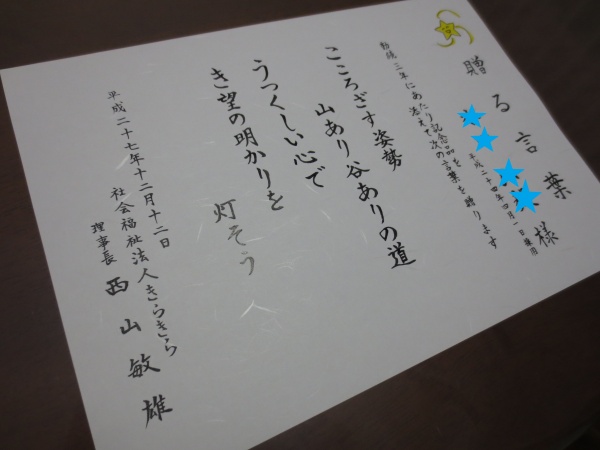 贈る言葉
様
平成二十四年四月一日採用
勤続三年にあたり記念品を
添えて次の言葉を贈ります
こころざす姿勢
山あり谷ありの道
うつくしい心で
き望の明かりを
灯そう
平成二十七年十二月十二日
社会福祉法人きらきら
理事長 西山敏雄